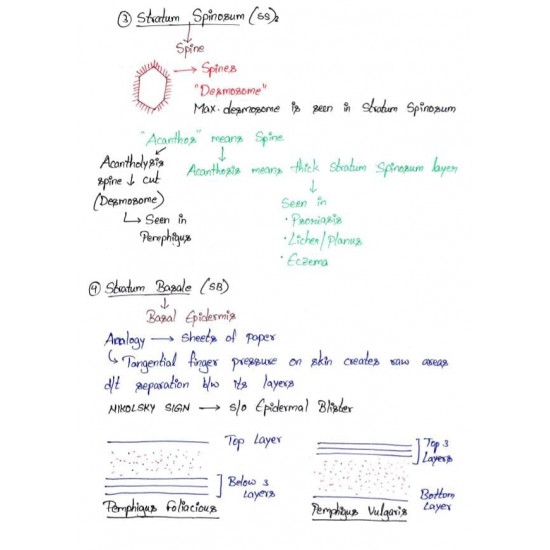 ③ Stratum Spinosum (SS)₂
Spine
→ Spines
"Desmosome"
Max. desmosome is seen in Stratum Spinosum
"Acanthos" means Spine
Acantholysis
spine ↓ cut
(Desmosome)
↳ Seen in
Pemphigus
Acanthosis means thick Stratum Spinosum layer
Seen in
• Psoriasis
• Lichen/Planus
• Eczema
④ Stratum Basale (SB)
Basal Epidermis
Analogy → Sheets of paper
↳ Tangential finger pressure on skin creates raw areas
d/t separation b/w its layers
NIKOLSKY SIGN → s/o Epidermal Blister
Top Layer
Below 3
Layers
Pemphigus Foliacious
Top 3
Layers
Bottom
Layer
Pemphigus Vulgaris